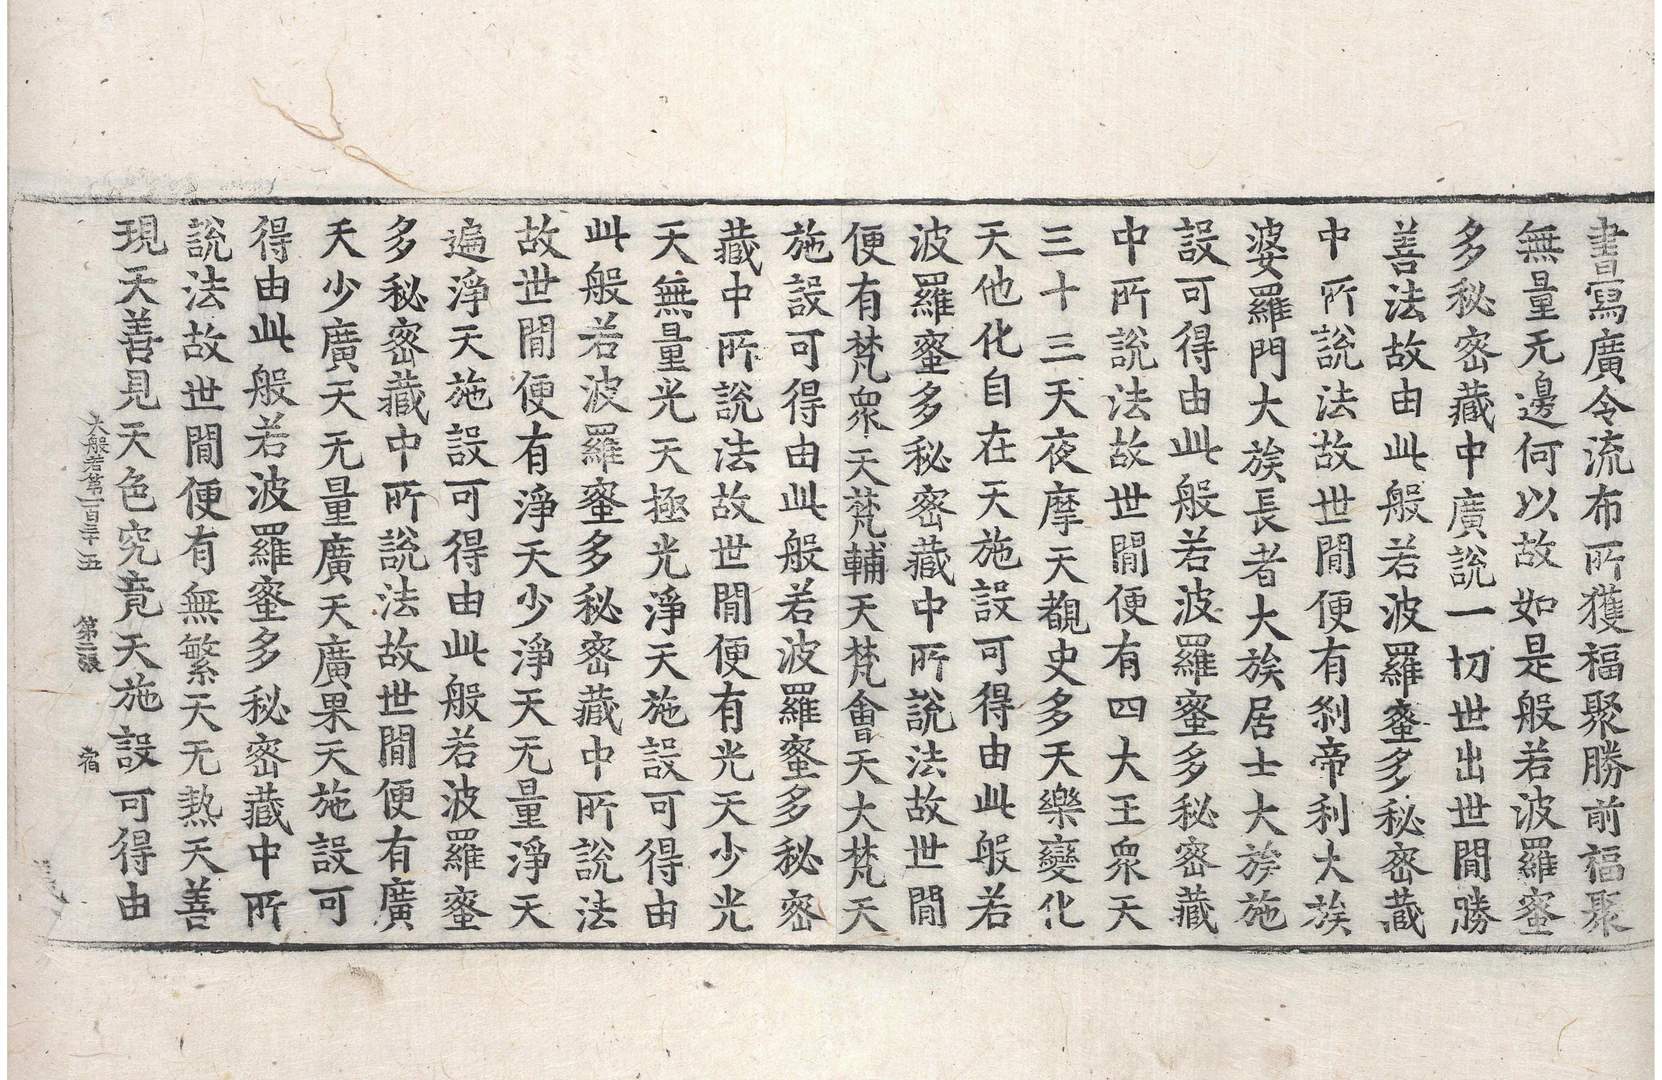 書寫廣令流布所獲福聚勝前福聚
無量无邊何以故如是般若波羅蜜
多秘密藏中廣說一切世出世間勝
善法故由此般若波羅蜜多秘密藏
中所說法故世間便有刹帝利大族
婆羅門大族長者大族居士大族施
設可得由此般若波羅蜜多秘密藏
中所說法故世間便有四大王衆天
三十三天夜摩天覩史多天樂變化
天他化自在天施設可得由此般若
波羅蜜多秘密藏中所說法故世間
便有梵衆天梵輔天梵會天大梵天
施設可得由此般若波羅蜜多秘密
藏中所說法故世間便有光天少光
天無量光天極光淨天施設可得由
此般若波羅蜜多秘密藏中所說法
故世間便有淨天少淨天无量淨天
遍淨天施設可得由此般若波羅蜜
多秘密藏中所說法故世間便有廣
天少廣天无量廣天廣果天施設可
得由此般若波羅蜜多秘密藏中所
說法故世間便有無繁天无熱天善
現天善見天色究竟天施設可得由
大般若第一百三十五 第二張 宿